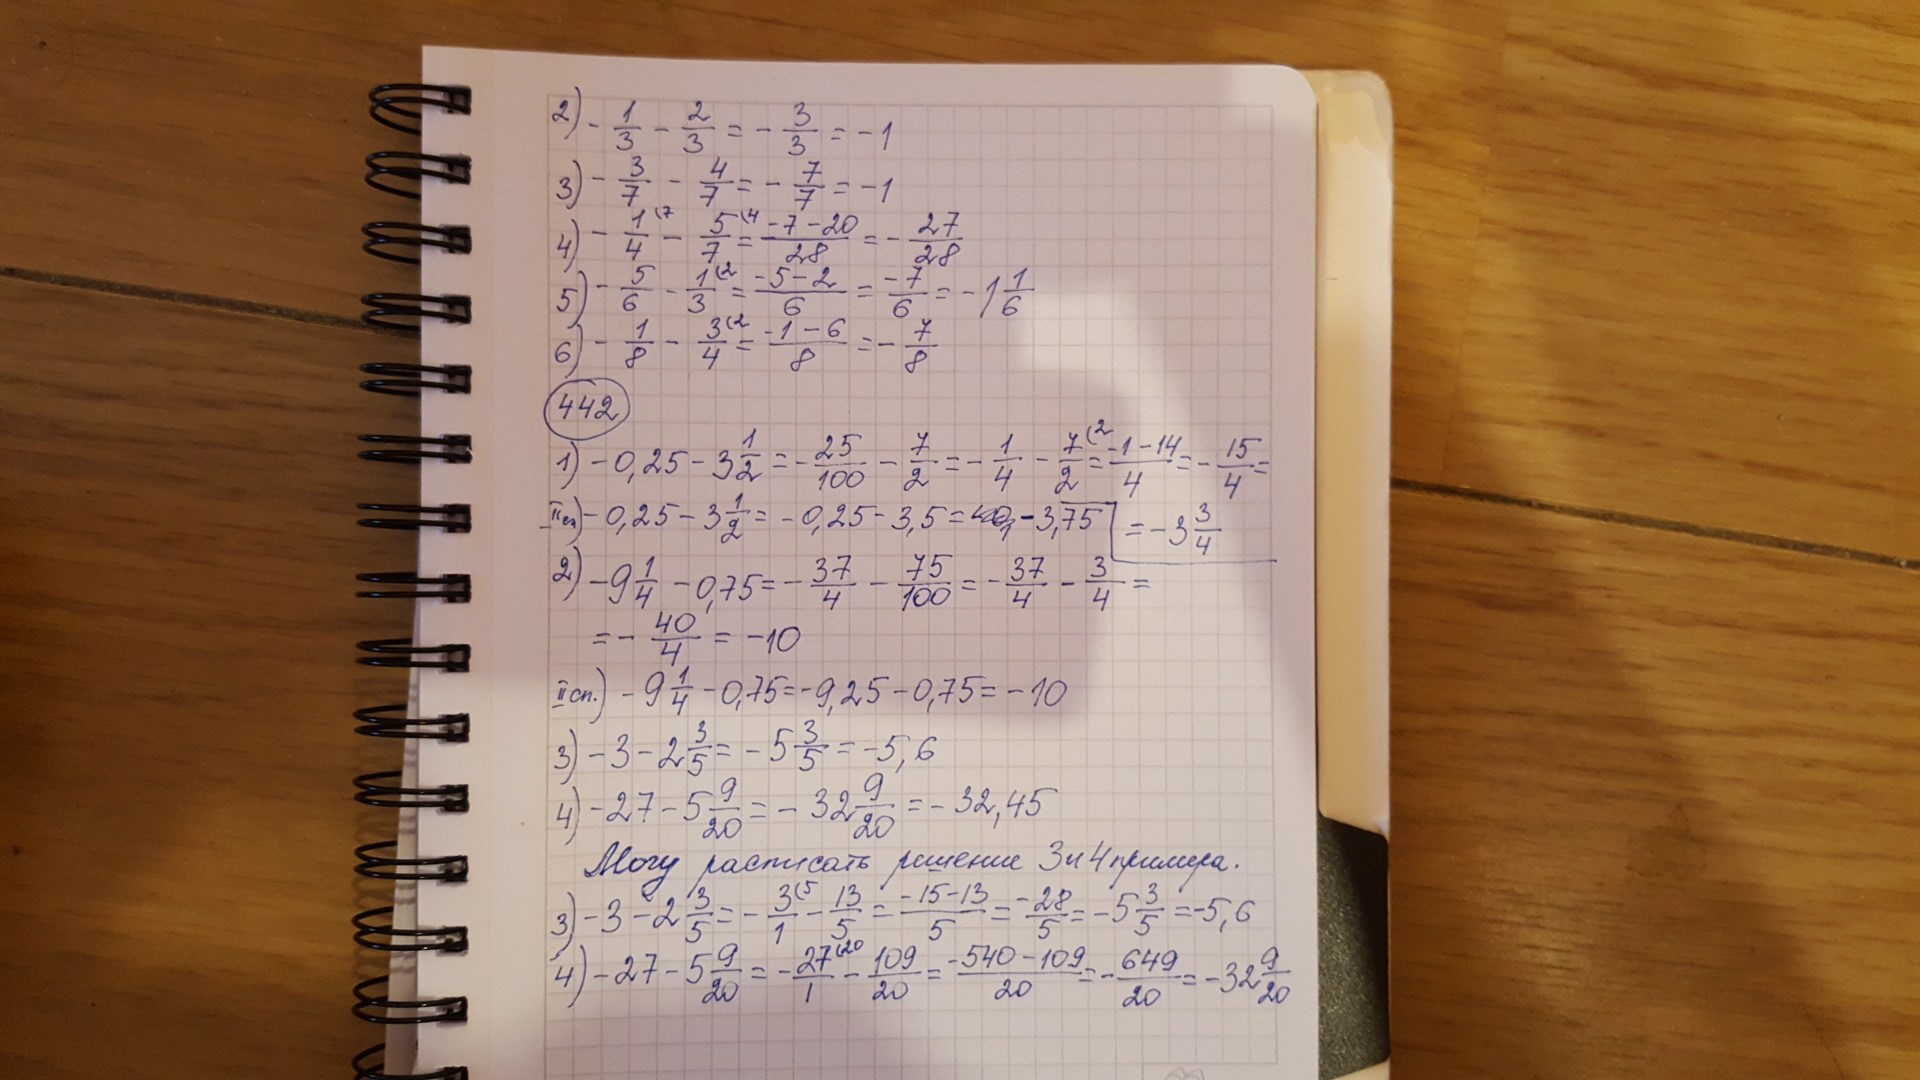 2) - 1/3 - 2/3 = - 3/3 = -1
3) - 3/7 - 4/7 = - 7/7 = -1
4) - 1/4 (7 - 5/7 (4 = -7-20/28 = - 27/28
5) - 5/6 - 1/3 (2 = -5-2/6 = -7/6 = -1 1/6
6) - 1/8 - 3/4 (2 = -1-6/8 = - 7/8
442
1) -0,25 - 3 1/2 = - 25/100 - 7/2 = - 1/4 - 7/2 (2 = -1-14/4 = - 15/4 =
= -3 3/4
II сп) -0,25 - 3 1/2 = -0,25 - 3,5 = -3,75
2) -9 1/4 - 0,75 = - 37/4 - 75/100 = - 37/4 - 3/4 =
= - 40/4 = -10
II сп.) -9 1/4 - 0,75 = -9,25 - 0,75 = -10
3) -3 - 2 3/5 = -5 3/5 = -5,6
4) -27 - 5 9/20 = -32 9/20 = -32,45
Могу расписать решение 3 и 4 примера.
3) -3 - 2 3/5 = - 3/1 (5 - 13/5 = -15-13/5 = -28/5 = -5 3/5 = -5,6
4) -27 - 5 9/20 = - 27/1 (20 - 109/20 = -540-109/20 = - 649/20 = -32 9/20